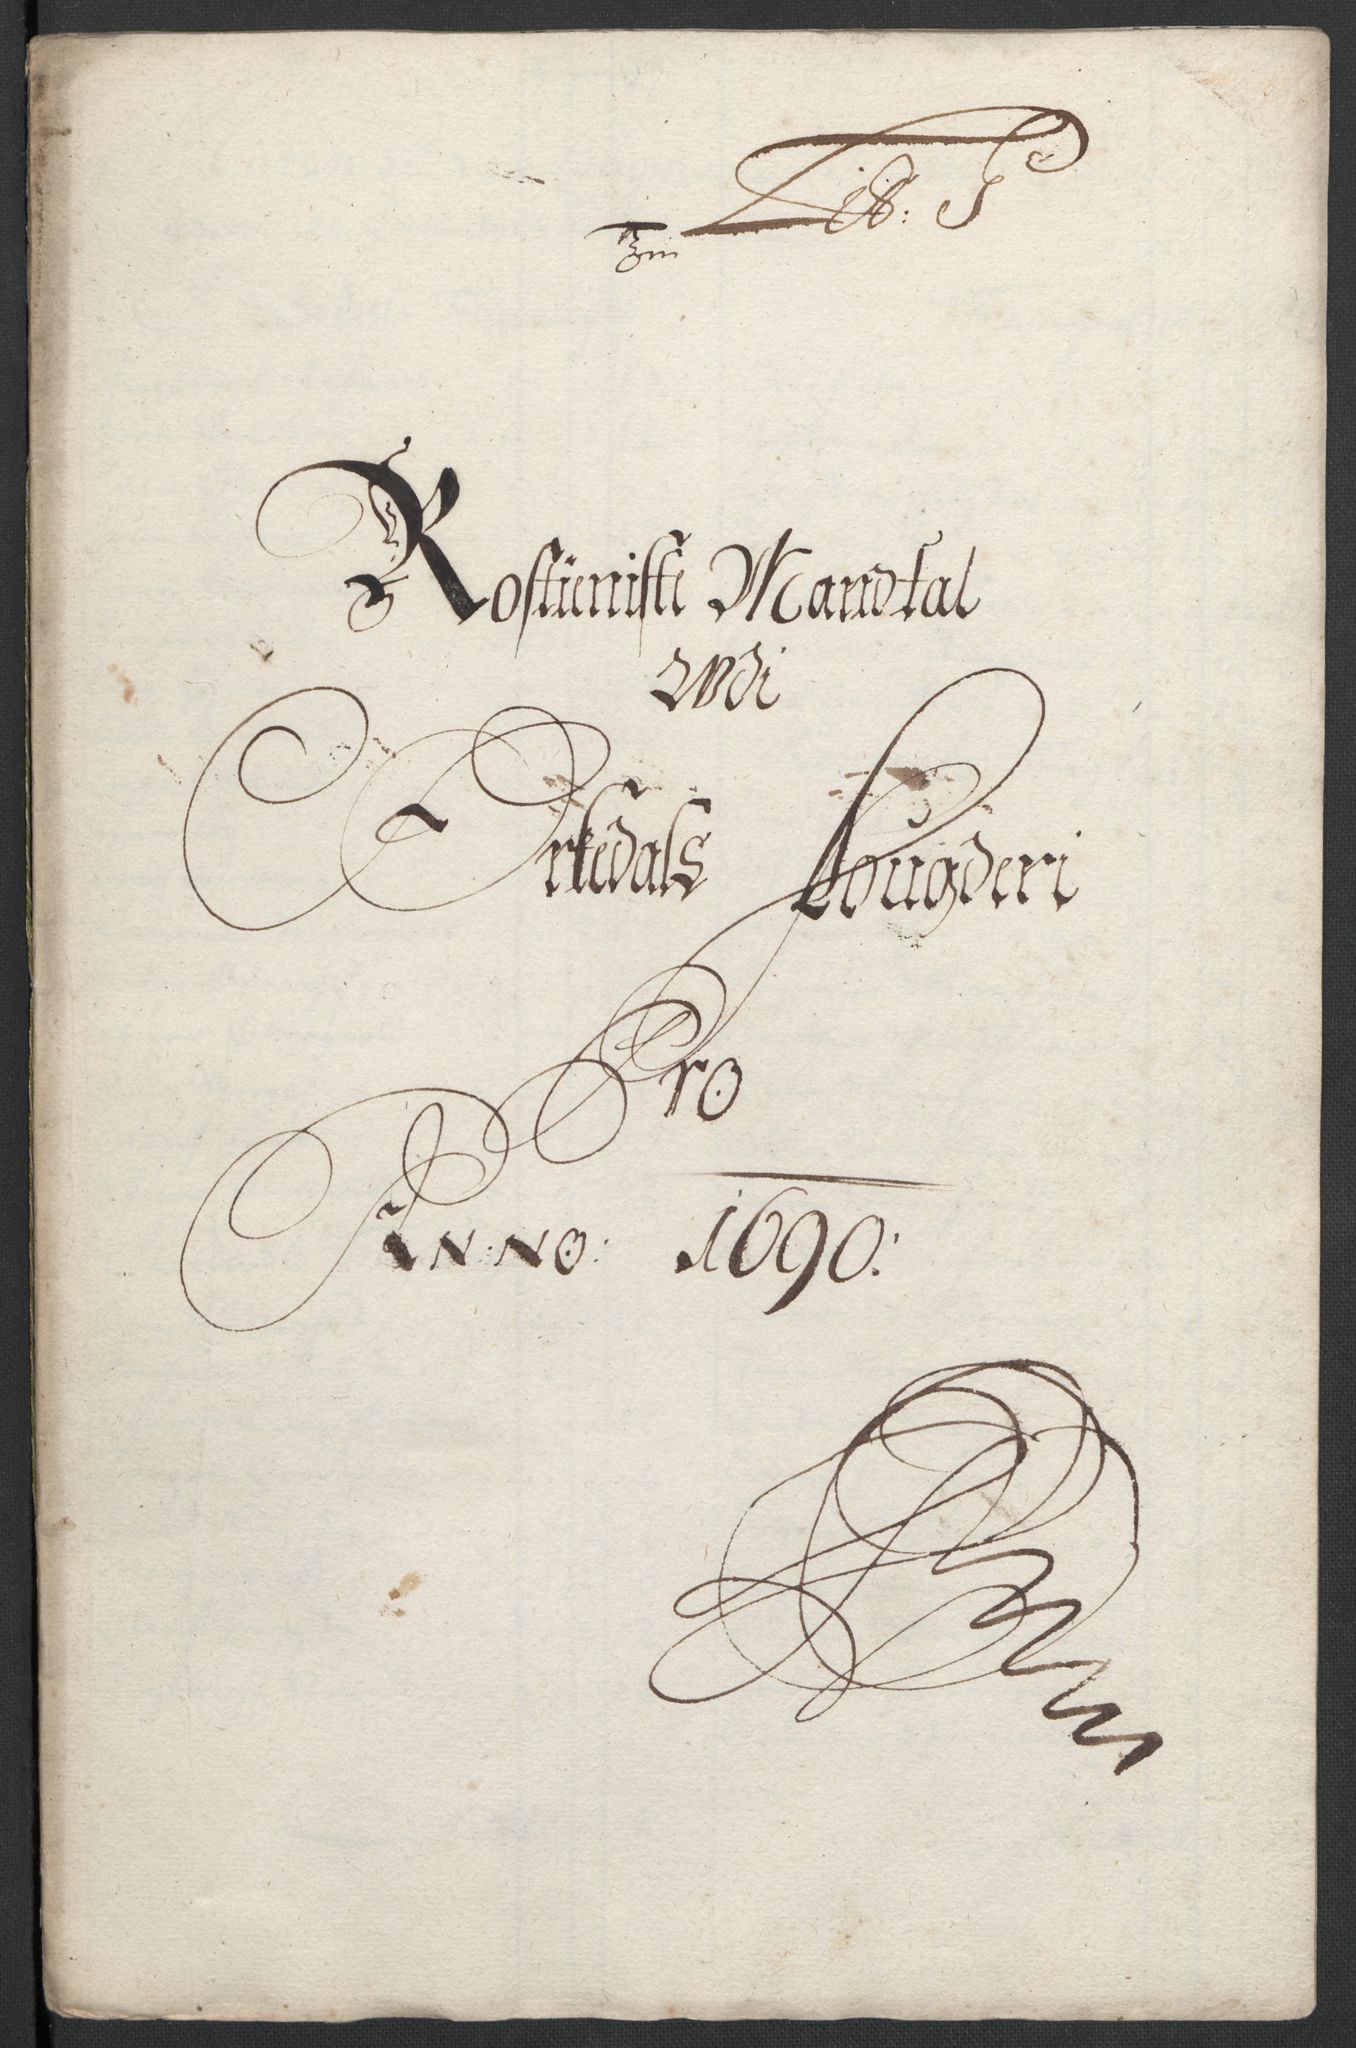 Lit: J
Rostieniste Mandtal
Udi
Orkedals Fougderi
Pro
Anno: 1690: